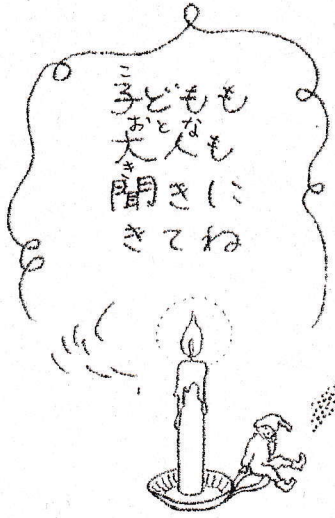 子どもも
大人も
聞きに
きてね